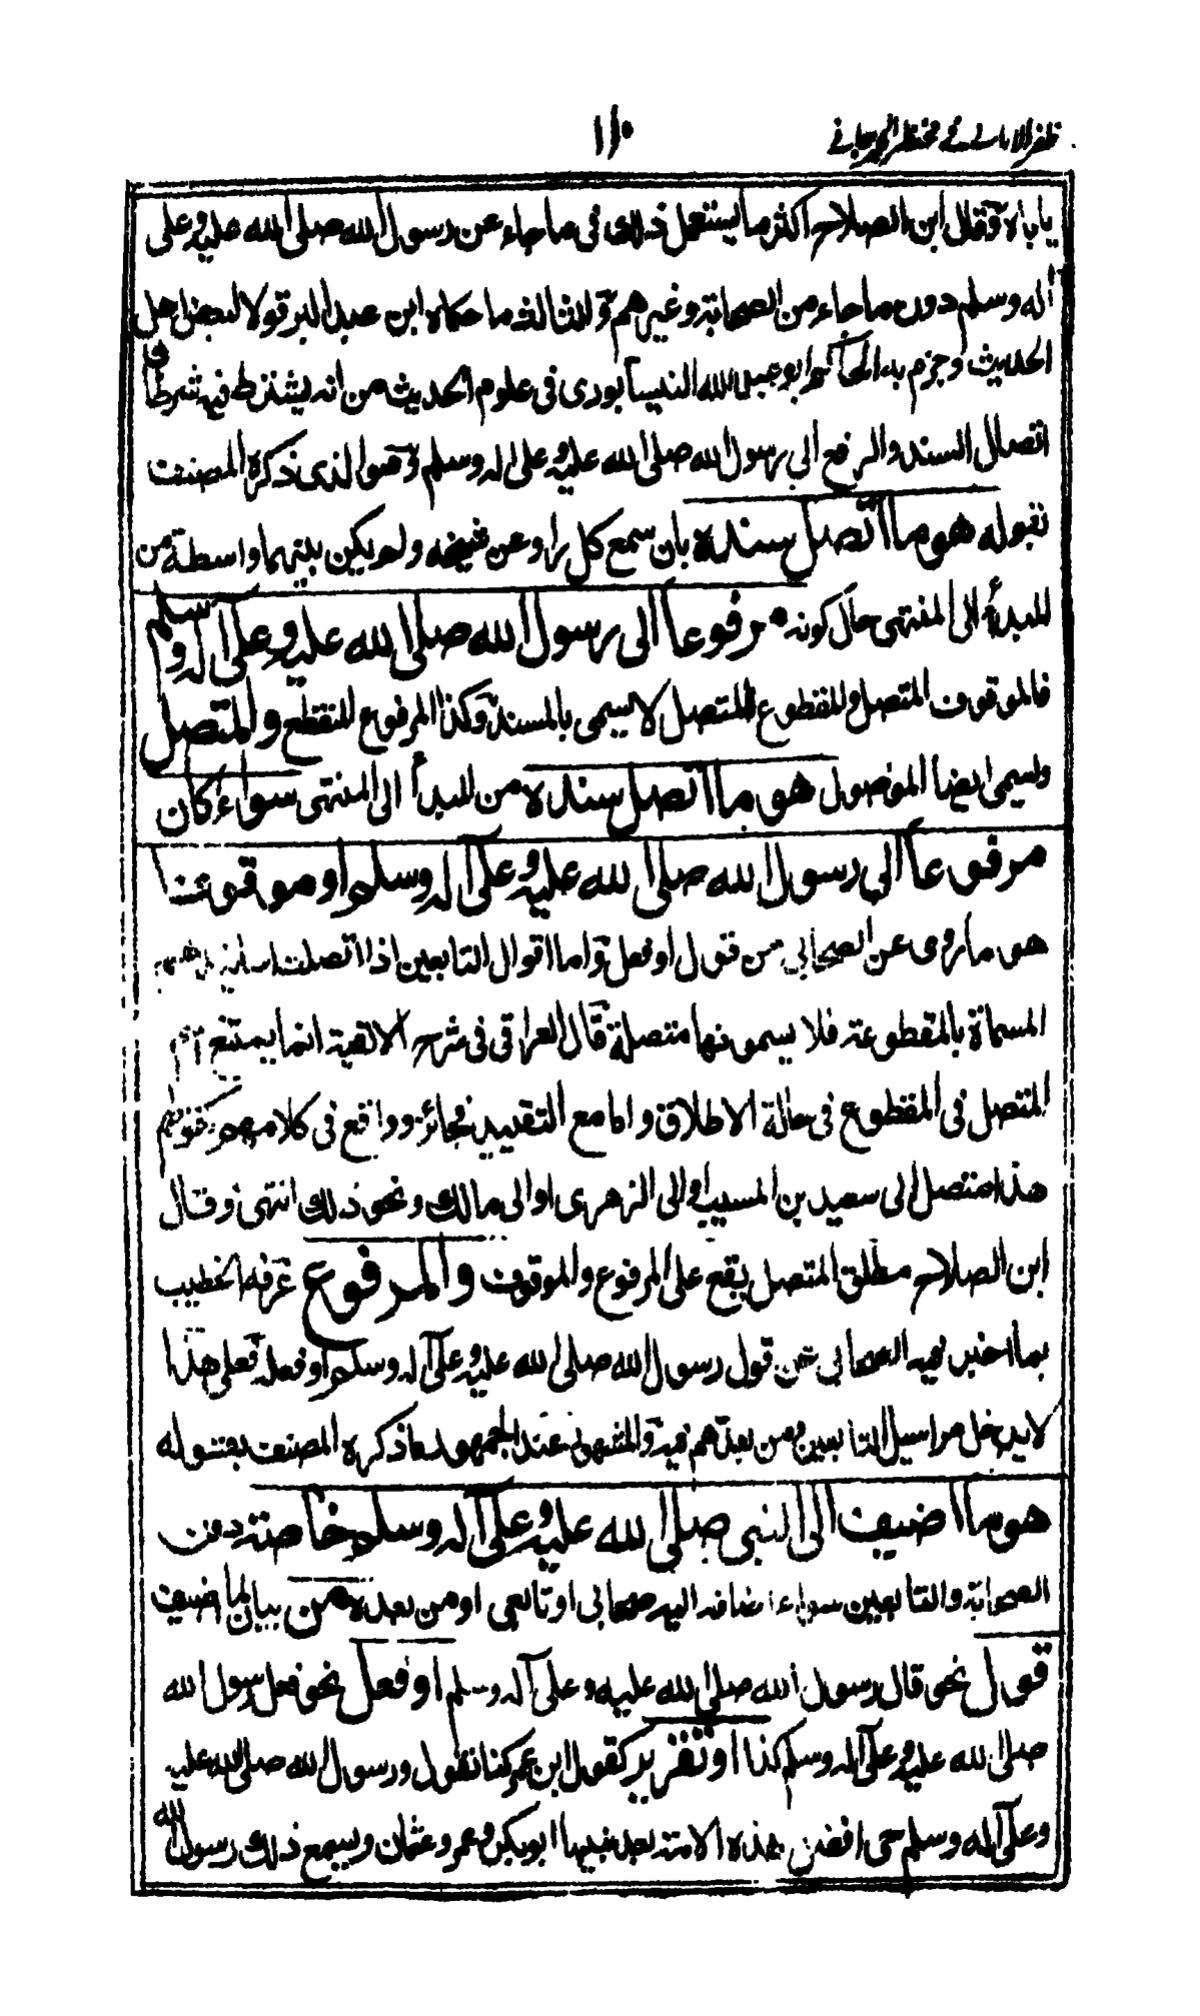 ظفر الاماني في مختصر الجرجاني
١١٠
ياباه وقال ابن الصلاح اكثر ما يستعمل ذلك في ما جاء عن رسول الله صلى الله عليه وعلى
آله وسلم دون ما جاء من الصحابة وغيرهم والثالث ما حكاه ابن عبد البر قولا لبعض اهل
الحديث وجزم به الحاكم ابو عبد الله النيسابوري في علوم الحديث من انه يشترط فيه شرطان
اتصال السند والرفع الى رسول الله صلى الله عليه وعلى اله وسلم وهو الذي ذكره المصنف
بقوله هو ما اتصل سنده بان سمع كل راو عن شيخه ولم يكن بينهما واسطة من
المبدأ الى المنتهى حال كونه مرفوعا الى رسول الله صلى الله عليه وعلى اله وسلم
فالموقوف المتصل والمقطوع المتصل لا يسمى بالمسند وكذا المرفوع المنقطع والمتصل
ويسمى ايضا الموصول هو ما اتصل سنده من المبدأ الى المنتهى سواء كان
مرفوعا الى رسول الله صلى الله عليه وعلى آله وسلم او موقوفا
هو ما روى عن الصحابي من قول او فعل واما اقوال التابعين اذا اتصلت اسانيد
المسماة بالمقطوعة فلا يسمونها متصلة قال العراقي في شرح الالفية انما يمتنع اسم
المتصل في المقطوع في حالة الاطلاق واما مع التقييد فجائز وواقع في كلامهم كقولهم
هذا متصل الى سعيد بن المسيب او الى الزهرى او الى مالك ونحو ذلك انتهى وقال
ابن الصلاح مطلق المتصل يقع على المرفوع والموقوف والمرفوع عرفه الخطيب
بما اخبر فيه الصحابي عن قول رسول الله صلى الله عليه وعلى آله وسلم او فعله فعلى هذا
لا يدخل مراسيل التابعين ومن بعدهم فيه والمشهور عند الجمهور ما ذكره المصنف بقوله
هو ما اضيف الى النبي صلى الله عليه وعلى آله وسلم خاصة دون
الصحابة والتابعين سواء اضافه اليه صحابي او تابعي او من بعده من بيان لما اضيف
قول نحو قال رسول الله صلى الله عليه وعلى آله وسلم او فعل نحو فعل رسول الله
صلى الله عليه وعلى آله وسلم كذا او تقرير كقول ابن عمر كنا نقول ورسول الله صلى الله عليه
وعلى آله وسلم حي افضل هذه الامة بعد نبيها ابو بكر وعمر وعثمان ويسمع ذلك رسول الله